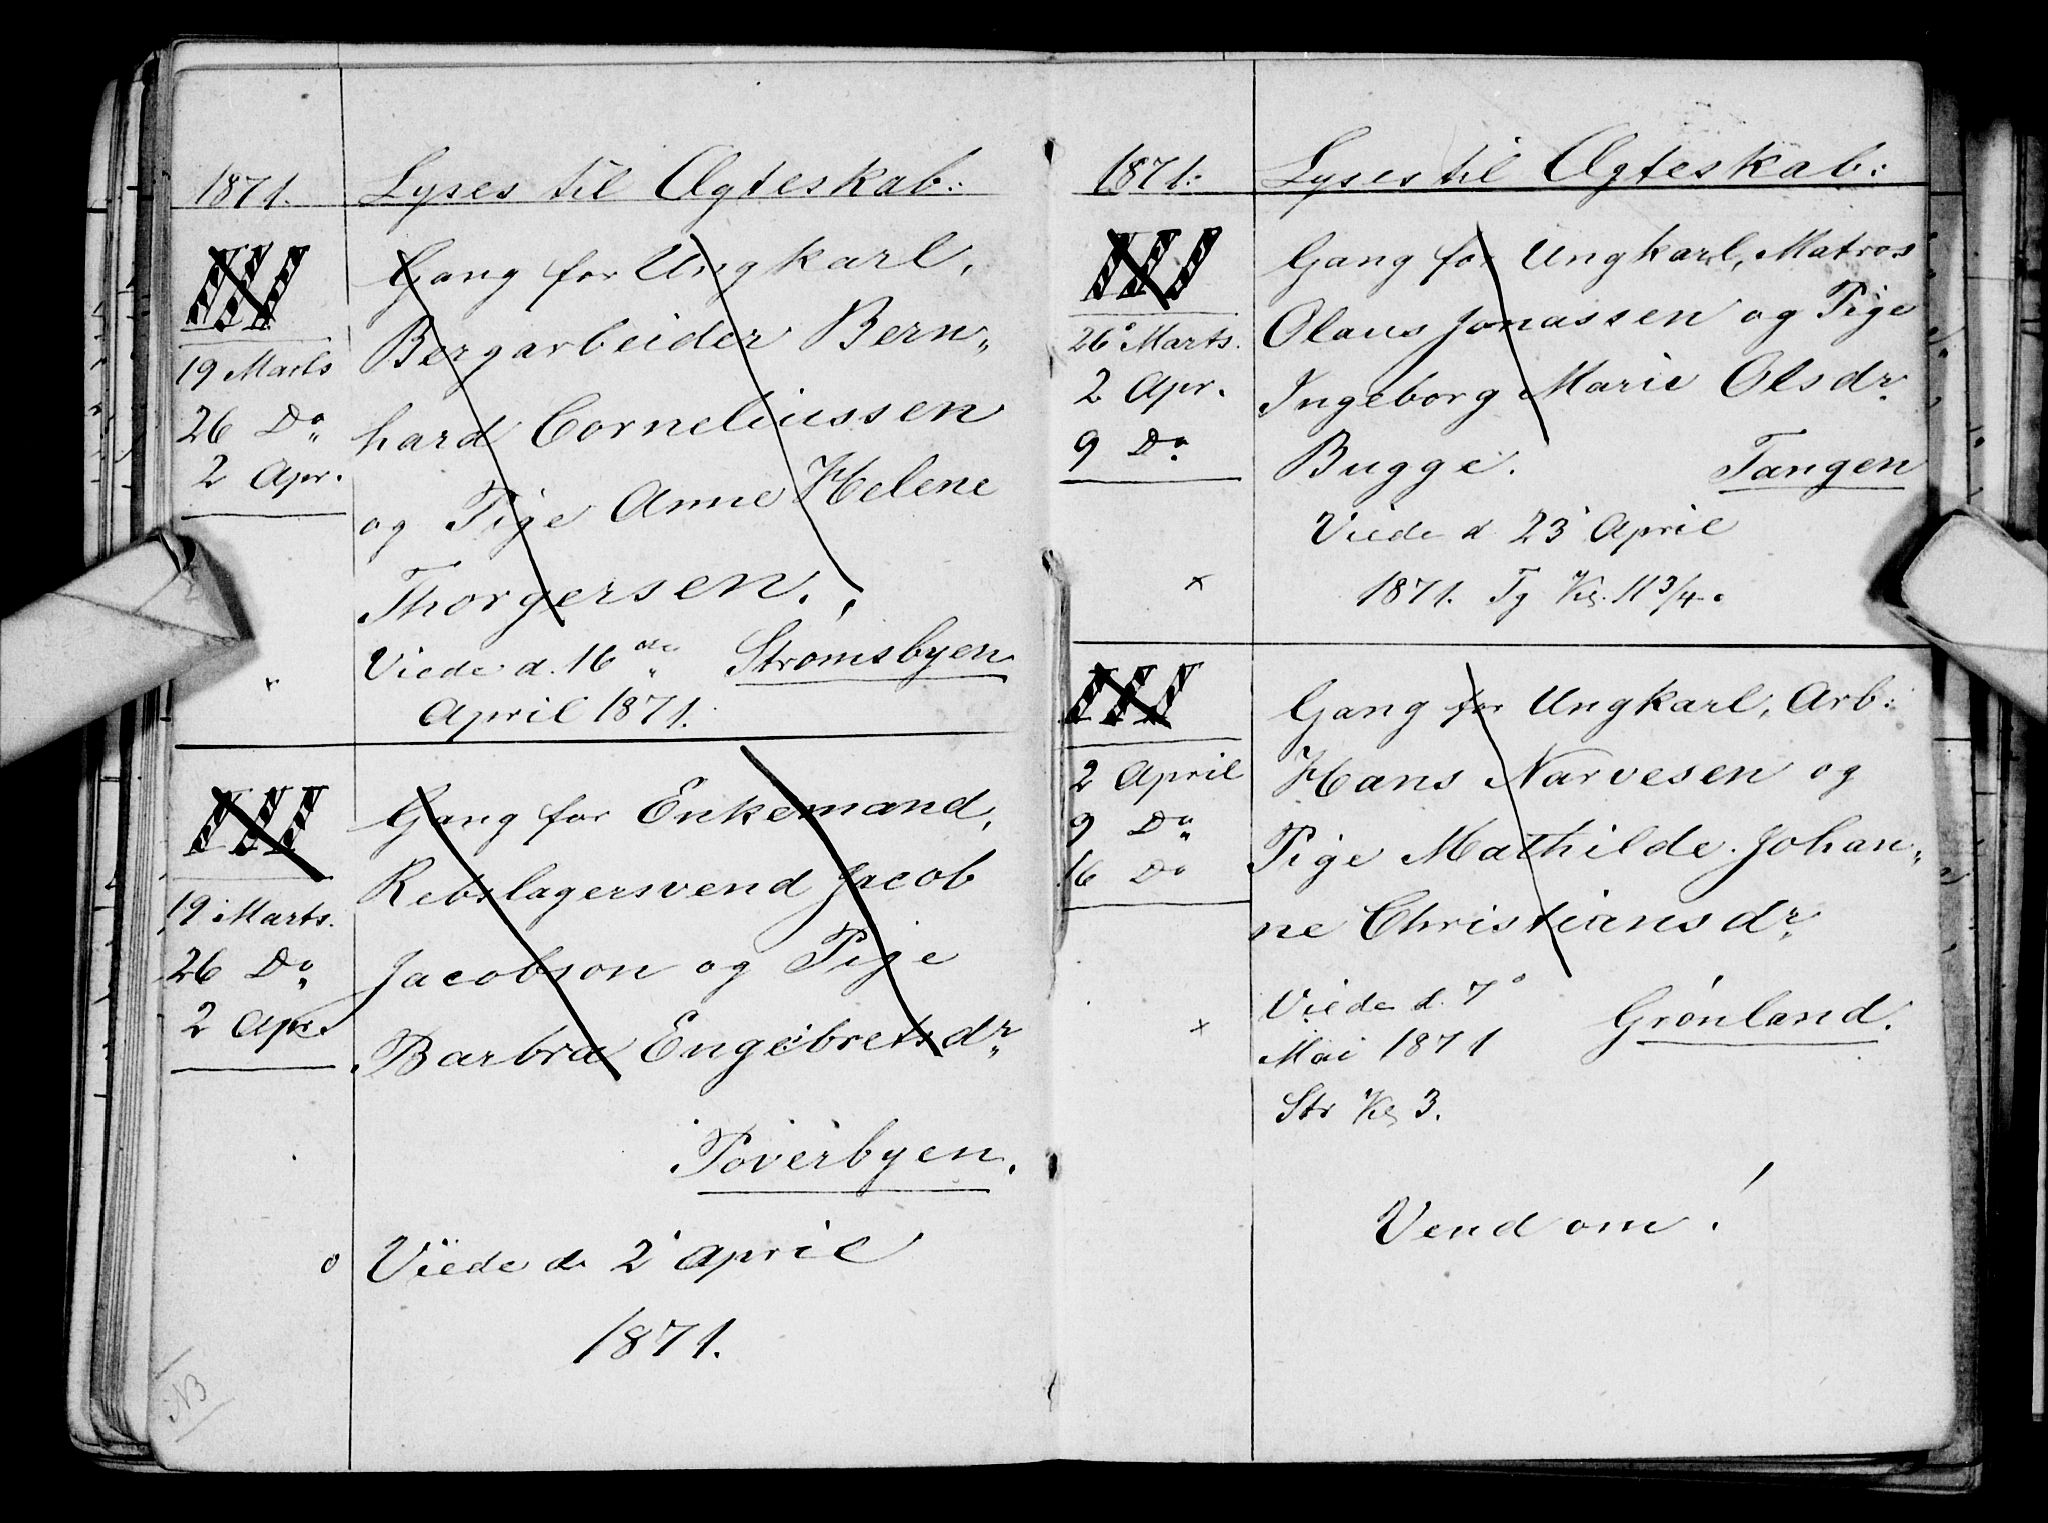 1871. Lyses til Ægteskab:
III Gang for Ungkarl,
Bergarbeider Bern„
19 Marts
hard Corneliussen
26 Do
og Pige Anne Helene
2 Apr.
Thorgersen.
Viede d. 16 Strømsbyen
April 1871.
III Gang for Enkemand,
Rebslagersvend Jacob
19 Marts.
Jacobson og Pige
26 Do
2 Apr.
Barbra Engebretsdr
Toverbyen.
o Viede d. 2 April
1871.
NB
1871: Lyses til Ægteskab:
III Gang for Ungkarl, Matros
26 Marts. Olaus Jonassen og Pige
2 Apr. Ingeborg Marie Olsdr
9 Do Bugge. Tangen
Viede d 23 April
x 1871. Tg Kl. 11 3/4.
III Gang for Ungkarl, Arb:
2 April Hans Narvesen og
9 Do Pige Mathilde Johan„
16 Do
ne Christiansdr
Viede d. 7
x Grønland.
Mai 1871
Str Kl 3.
Vend om!